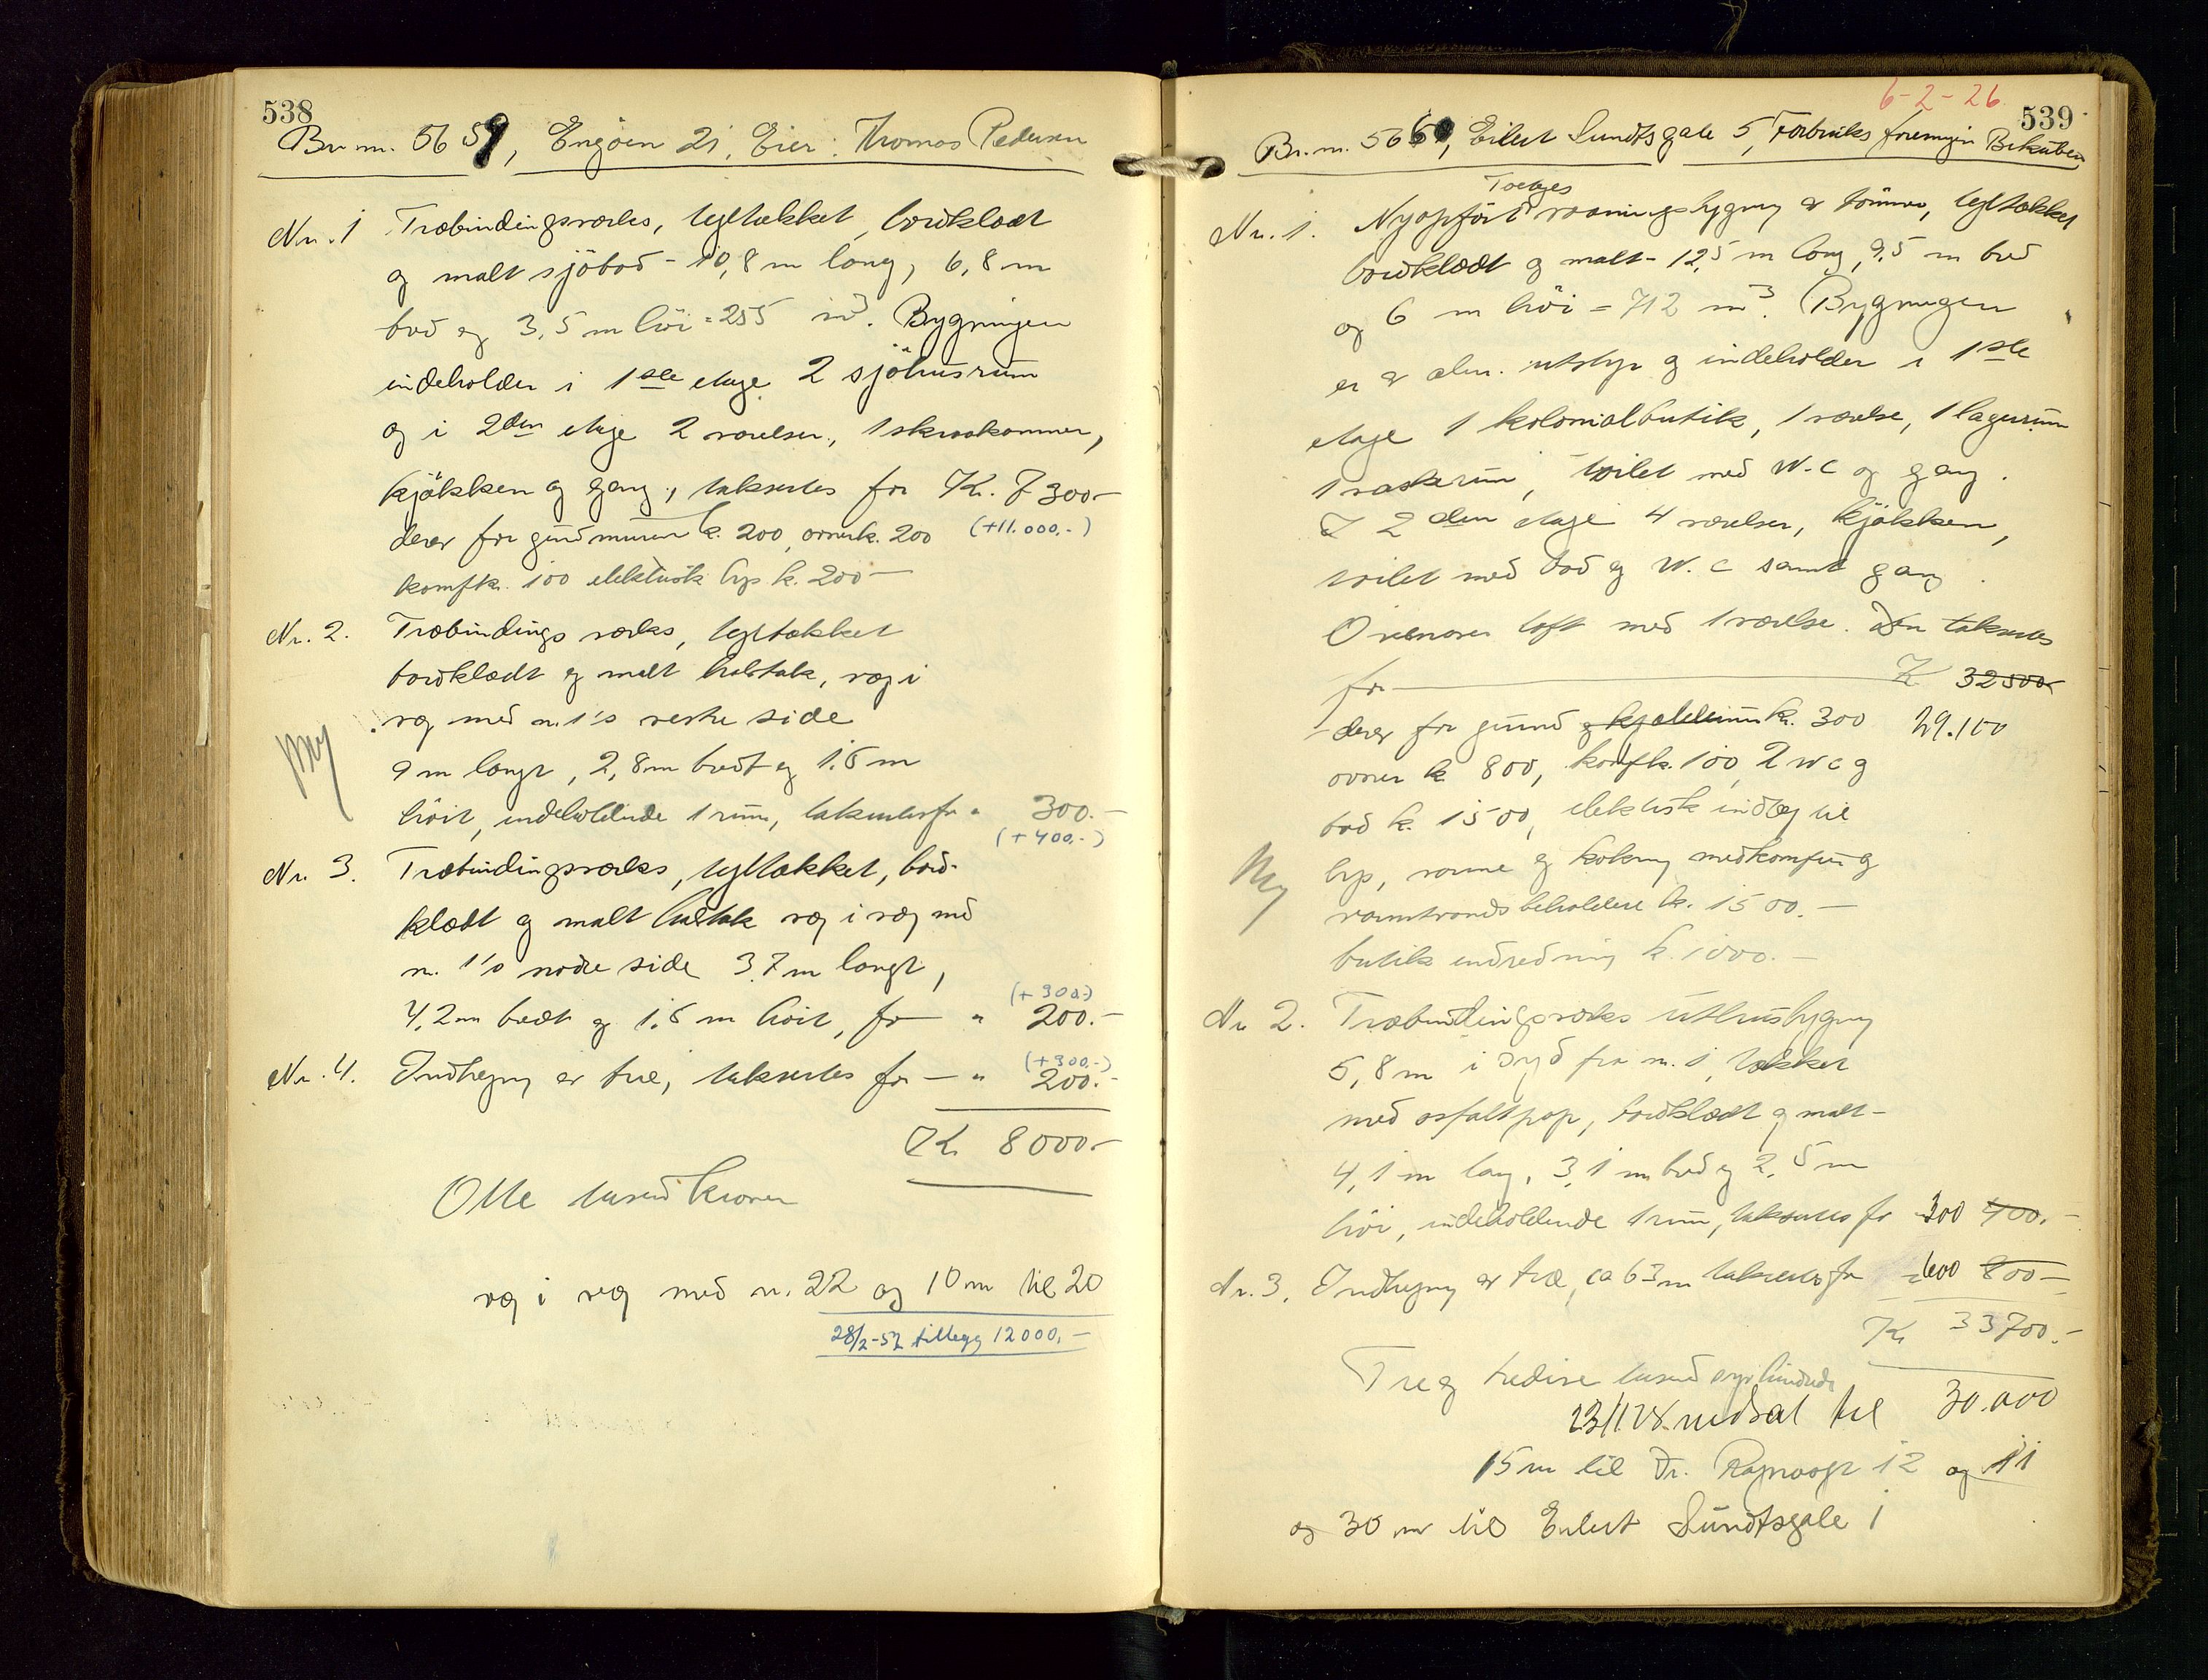 538
Br. nr. 5659, Engöen 21, Eier: Thomas Pedersen
Nr. 1 Træbindingsværks, tegltækket, bordklædt
og malt sjöbod - 10,8 m lang, 6,8 m
bred og 3,5 m höi = 255 m³. Bygningen
indeholder i 1ste etage 2 sjöhusrum
og i 2den etage 2 værelser, 1 skraakammer,
kjökken og gang, takseres for Kr. 7300.-
derav for grundmuren k. 200, ovner k. 200 (+11.000.-)
komf k. 100 elektrisk lys k. 200 -
Nr. 2. Træbindings værks, tegltækket
bordklædt og malt halvtak, væg i
væg med nr. 1's vestre side
9 m langt, 2,8 m bredt og 1.6 m
höit, indeholdende 1 rum, takseres for " 300.-
(+400.-)
Nr. 3. Træbindingsværks, tegltækket, bord-
klædt og malt halvtak væg i væg med
nr. 1's nordre side 3.7 m langt,
(+300.-)
4,2 m bredt og 1.6 m höit, for - " 200.-
(+300.-)
Nr. 4. Indhegning av træ, takseres for - " 200.-
Kr. 8000.-
Otte tusend kroner
væg i væg med nr. 22 og 10 m til 20
28/2-52 tillegg 12000.-
6-2-26
539
Br. nr. 5660, Eilert Sundtsgate 5, Forbruks foreningen Bikuben
Toetages
Nr. 1. Nyopfört vaaningsbygning av tömmer, tegltækket
bordklædt og malt - 12,5 m lang, 9,5 m bred
og 6 m höi = 712 m³. Bygningen
er av alm. utstyr og indeholder i 1ste
etage 1 kolonialbutik, 1 værelse, 1 lagerrum
1 vaskerum, toilet med W.C og gang.
I 2den etage 4 værelser, kjökken,
toilet med bad og W.C samt gang.
Ovenover loft med 1 værelse. Den takseres
for - K 32500.-
derav for grund og kjælderrum k. 300 29.100
ovner k 800, komf k. 100, 2 wc og
bad k. 1500, elektrisk indlæg til
lys, varme og kokning med komfur og
varmtvandsbeholdere k. 1500.-
butik indredning k. 1000.-
Nr 2. Træbindingsværks uthusbygning
5,8 m i syd fra nr. 1, tækket
med asfaltpap, bordklædt og malt -
4,1 m lang, 3,1 m bred og 2.5 m
höi, indeholdende 1 rum, takseres for 300 400.-
Nr. 3. Indhegning av træ, ca 63 m takseres for 600 800.-
Kr 33700.-
Tre og tredive tusend syv hundrede
23/1 28. nedsat til 30.000
15 m til 12 og 11
og 30 m til Eilert Sundtsgate 1